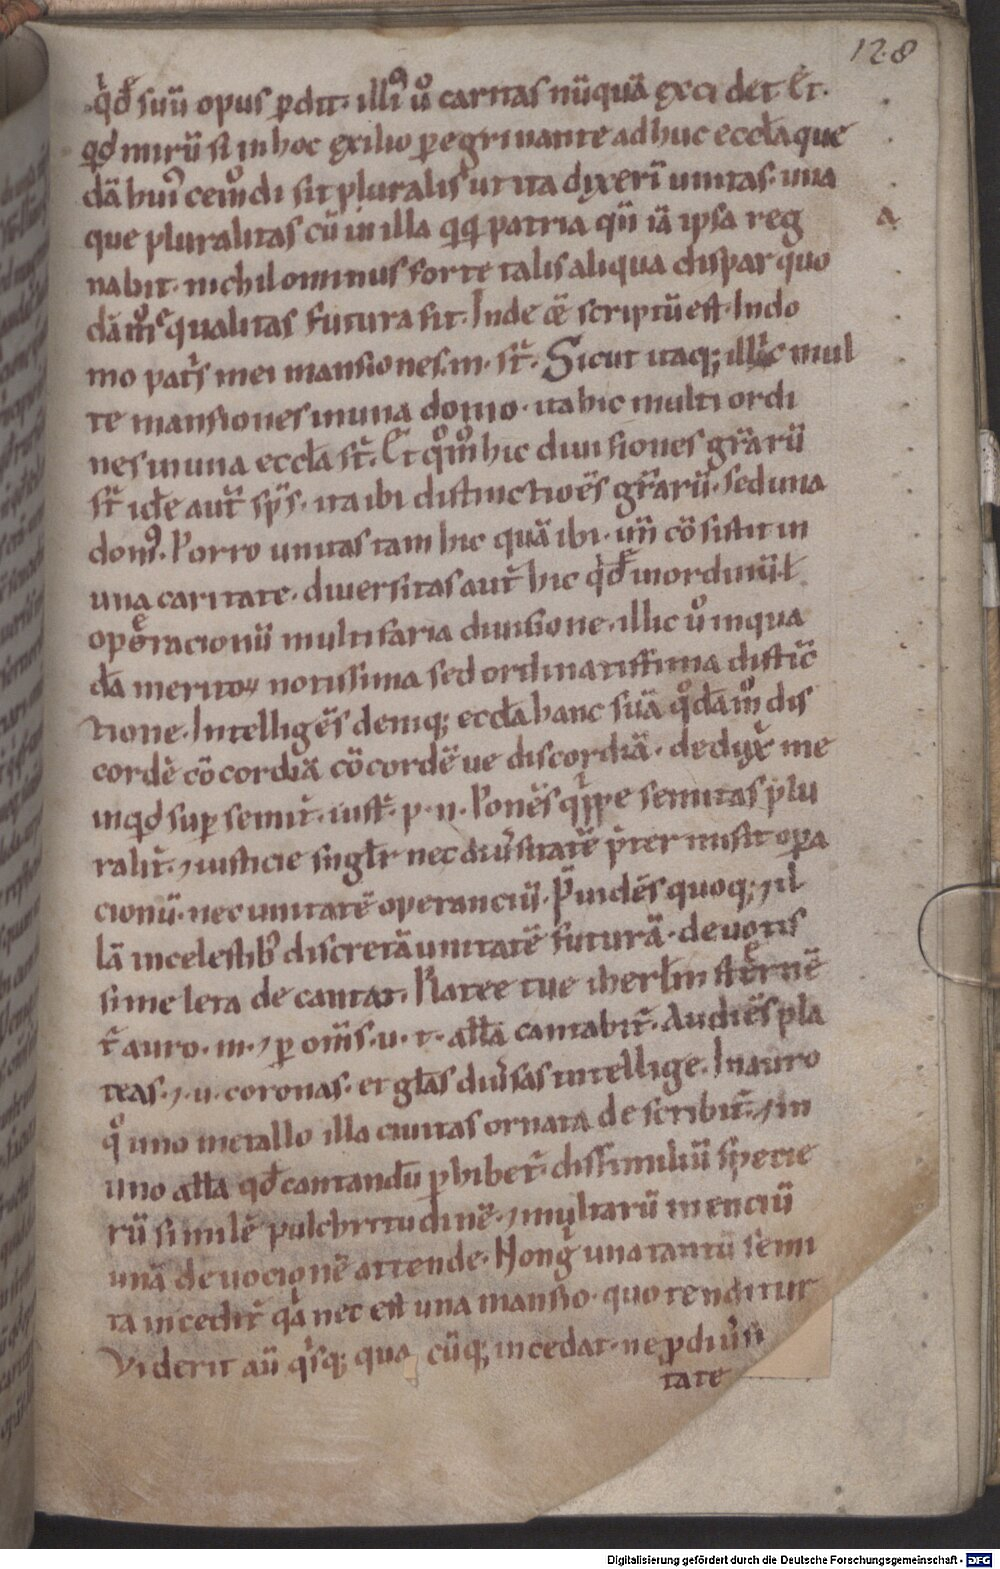 128
q̇d̄ suū opus ꝑdit· illiꝰ ů caritas nūquā excidet Et·
qd mirū si in hoc exilio ꝑegrinante adhuc eccła que
dā huiꝰcemodi sit pluralis ut ita dixerī unitas· una
que pluralitas cū in illa qq patria qn̄ iā ipsa reg
nabit· nichilominus forte talis aliqua dispar quo
dāmͦ equalitas futura sit· Inde ēē scriptū est· In do
mo pat̄s mei mansiones·m· st̄· Sicut itaq; illic mul
te mansiones in una domo· ita hic multi ordi
nes in una eccła st̄· Et qͦmͦ hic diuisiones grārū
st̄ idē aut̄ sp̄s· ita ibi distinctioēs grārū· sed una
domꝰ· Porro unitas tam hic quā ibi· un̄ cōsistit in
una caritate· diuersitas aut̄ hic q̇d̄ē in ordinū ł
operacionū multifaria diuisione· illic ů in qua
dā meritoꝝ notissima sed ordinatissima distīc
tione· Intelligēs deniq; eccła hanc suā qͦdāmͦ dis
cordē cōcordiā cōcordē ue discordiā· deduxͭ me
inqd suꝑ semit̄· iust̄· ꝓ· n· Ponēs qͥppe semitas plu
ralit̄· ⁊ iusticie singłr nec diůsitatē p̄termisit oꝑa
cionū· nec unitatē operanciū· P̄uidēs quoq; ⁊ il
lā in celestibꝫ discretā unitatē futurā· deuotis
sime leta decantat· Platee tue iherłm sternē
t̄ auro· m· ⁊ ꝑ om̄s· u· t· ałła cantabit̄· Audiēs pla
teas· ⁊· u· coronas· et głas diůsas intellige· In auro
qͦ uno metallo illa ciuitas ornata describit̄· ⁊ in
uno ałła qd̄ cantandū ꝑhibet̄· dissimiliū specie
rū similē pulchritudinē· ⁊ multarū menciū
unā deuocionē attende· Non g̊ una tantū semi
ta incedit̄ qͣ nec est una mansio· quo tenditur
Viderit aū qͥsq; qua cūq; incedat· ne ꝓ diůsi
tate
Digitalisierung gefördert durch die Deutsche Forschungsgemeinschaft - DFG